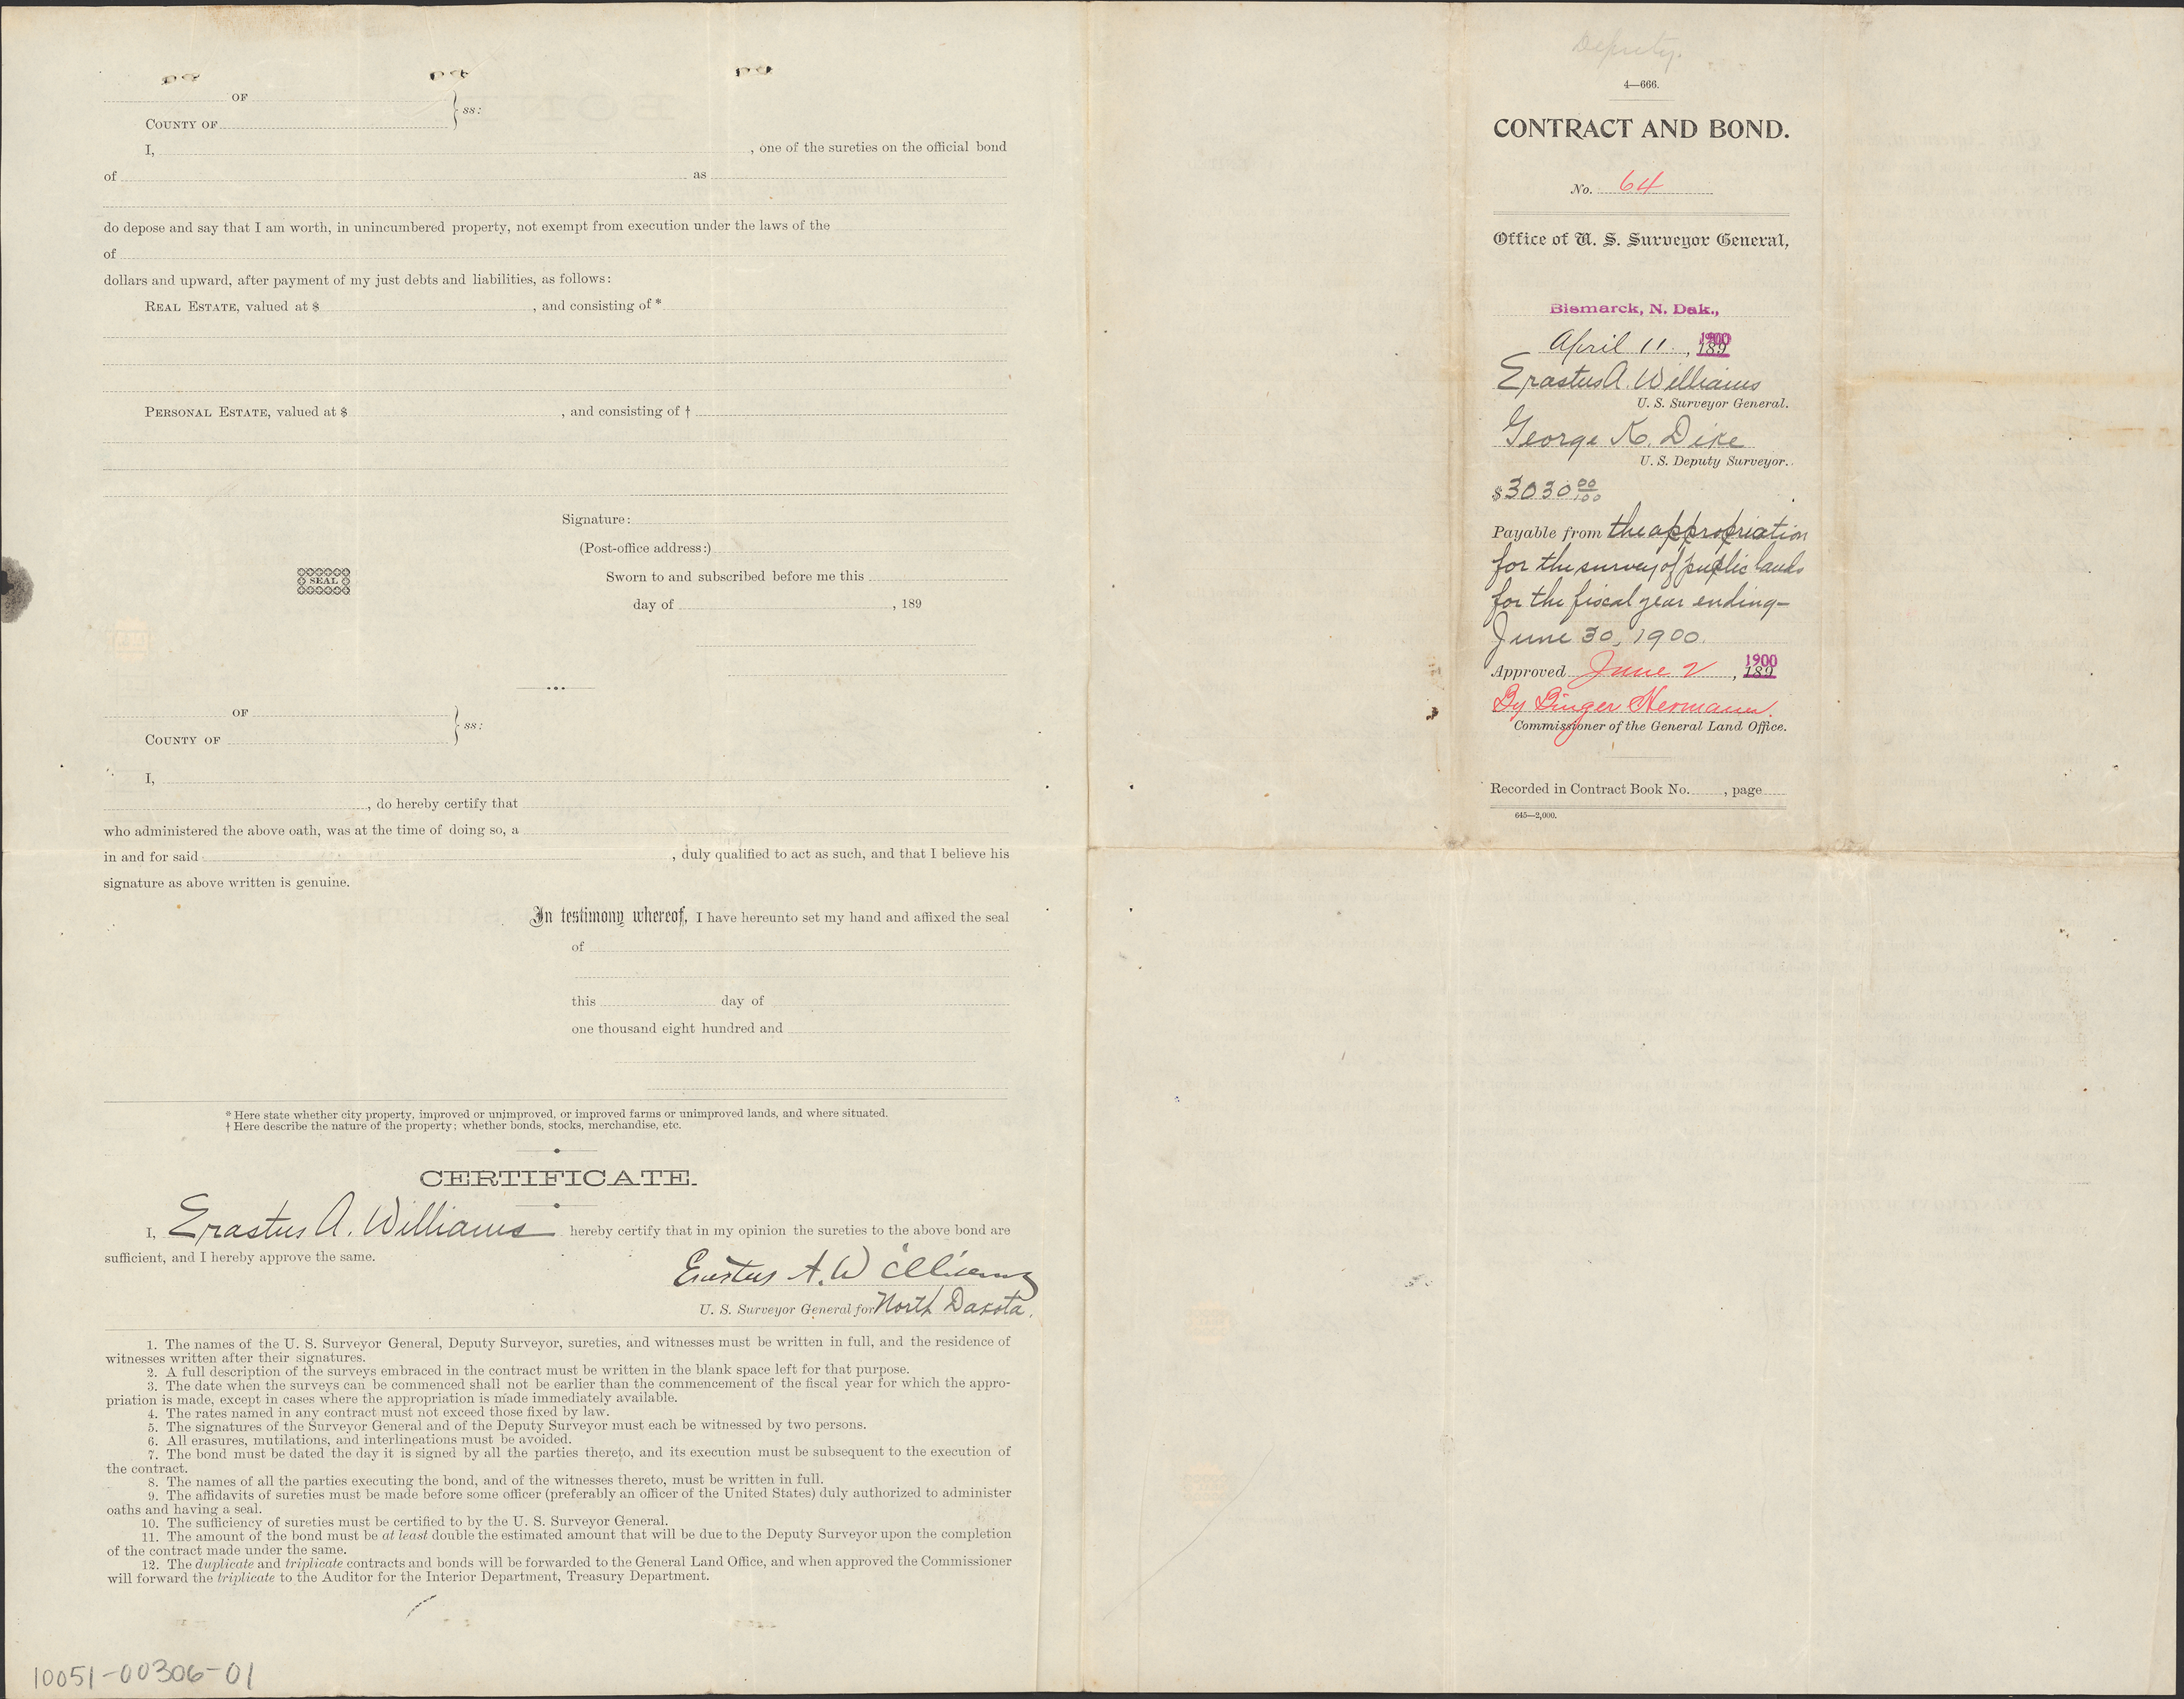 OF ss:
COUNTY OF
I, , one of the sureties on the official bond
of as
do depose and say that I am worth, in unincumbered property, not exempt from execution under the laws of the
of
dollars and upward, after payment of my just debts and liabilities, as follows:
REAL ESTATE, valued at $ , and consisting of *
PERSONAL ESTATE, valued at $ , and consisting of †
Signature:
(Post-office address:)
SEAL
Sworn to and subscribed before me this
day of , 189
OF ss:
COUNTY OF
I,
, do hereby certify that
who administered the above oath, was at the time of doing so, a
in and for said , duly qualified to act as such, and that I believe his
signature as above written is genuine.
In testimony whereof, I have hereunto set my hand and affixed the seal
of
this day of
one thousand eight hundred and
* Here state whether city property, improved or unimproved, or improved farms or unimproved lands, and where situated.
† Here describe the nature of the property; whether bonds, stocks, merchandise, etc.
CERTIFICATE.
I, Erastus A. Williams hereby certify that in my opinion the sureties to the above bond are
sufficient, and I hereby approve the same.
Erastus A. Williams
U. S. Surveyor General for North Dakota.
1. The names of the U. S. Surveyor General, Deputy Surveyor, sureties, and witnesses must be written in full, and the residence of
witnesses written after their signatures.
2. A full description of the surveys embraced in the contract must be written in the blank space left for that purpose.
3. The date when the surveys can be commenced shall not be earlier than the commencement of the fiscal year for which the appro-
priation is made, except in cases where the appropriation is made immediately available.
4. The rates named in any contract must not exceed those fixed by law.
5. The signatures of the Surveyor General and of the Deputy Surveyor must each be witnessed by two persons.
6. All erasures, mutilations, and interlineations must be avoided.
7. The bond must be dated the day it is signed by all the parties thereto, and its execution must be subsequent to the execution of
the contract.
8. The names of all the parties executing the bond, and of the witnesses thereto, must be written in full.
9. The affidavits of sureties must be made before some officer (preferably an officer of the United States) duly authorized to administer
oaths and having a seal.
10. The sufficiency of sureties must be certified to by the U. S. Surveyor General.
11. The amount of the bond must be at least double the estimated amount that will be due to the Deputy Surveyor upon the completion
of the contract made under the same.
12. The duplicate and triplicate contracts and bonds will be forwarded to the General Land Office, and when approved the Commissioner
will forward the triplicate to the Auditor for the Interior Department, Treasury Department.
10051-00306-01
Deputy.
4—666.
CONTRACT AND BOND.
No. 64
Office of U. S. Surveyor General,
Bismarck, N. Dak.,
April 11, 1900 189
Erastus A. Williams
U. S. Surveyor General.
George K. Dike
U. S. Deputy Surveyor.
$3030 00/100
Payable from the appropriation
for the survey of public lands
for the fiscal year ending—
June 30, 1900.
Approved June 2, 1900 189
By Binger Hermann.
Commissioner of the General Land Office.
Recorded in Contract Book No. , page
645—2,000.